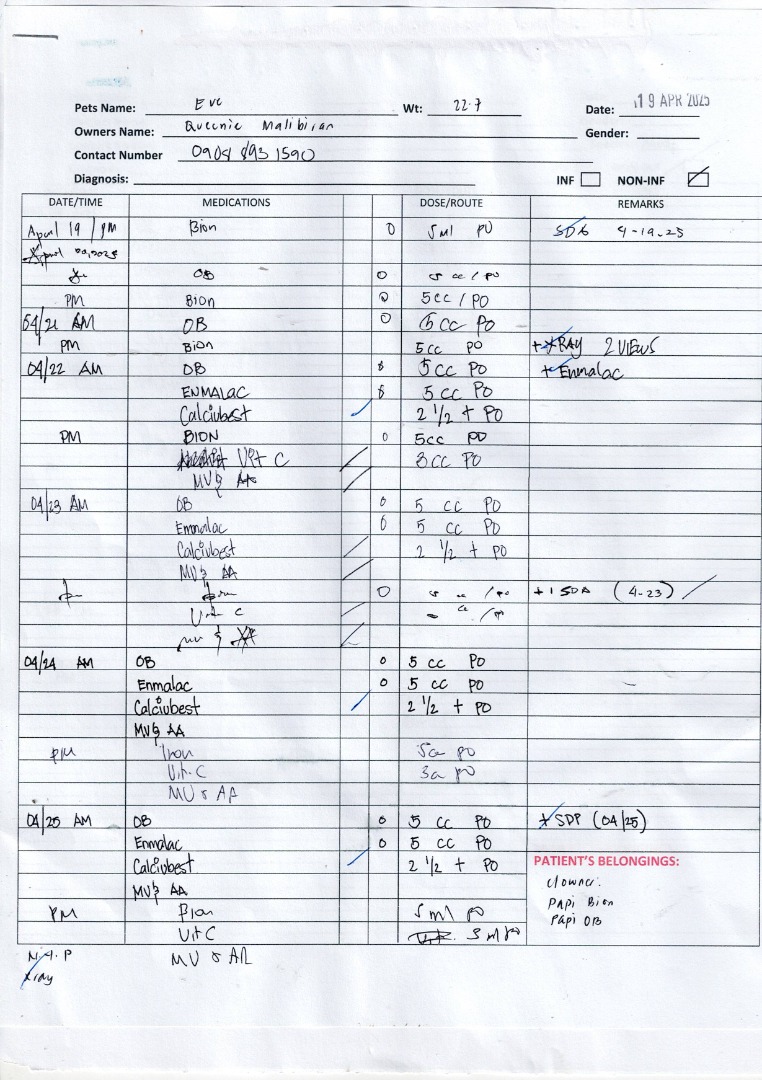 Pets Name: Eve Wt: 22.7 Date: 19 APR 2025
Owners Name: Queenie Malibiran Gender:
Contact Number 0908 893 1590
Diagnosis: INF NON-INF
DATE/TIME MEDICATIONS DOSE/ROUTE REMARKS
April 19 / PM Bion 0 5ml PO SDA 4-19-25
April 20, 2025
OB 0 5 cc / PO
PM Bion 0 5cc / PO
04/21 AM OB 0 5 cc PO
PM Bion 5cc PO + XRAY 2 VIEWS
04/22 AM OB 5 CC PO + Enmalac
ENMALAC 5 CC PO
Calciubest 2 1/2 + PO
PM BION 0 5cc PO
Vit C 3cc PO
MV & AA
04/23 AM OB 0 5 cc PO
Enmalac 0 5 cc PO
Calciubest 2 1/2 + PO
MV & AA
0 5 cc / PO + 1 SDA (4-23)
Vit C
MV &
04/24 AM OB 0 5 cc PO
Enmalac 0 5 cc PO
Calciubest 2 1/2 + PO
MV & AA
PM 5cc PO
Vit. C 3cc PO
MV & AA
04/25 AM OB 0 5 CC PO + SDP (04/25)
Enmalac 0 5 cc PO
Calciubest 2 1/2 + PO PATIENT'S BELONGINGS:
MV & AA c/owner:
PM Bion 5ml PO Papi Bion
Vit C 3 ml PO Papi OB
MV & AA
xray